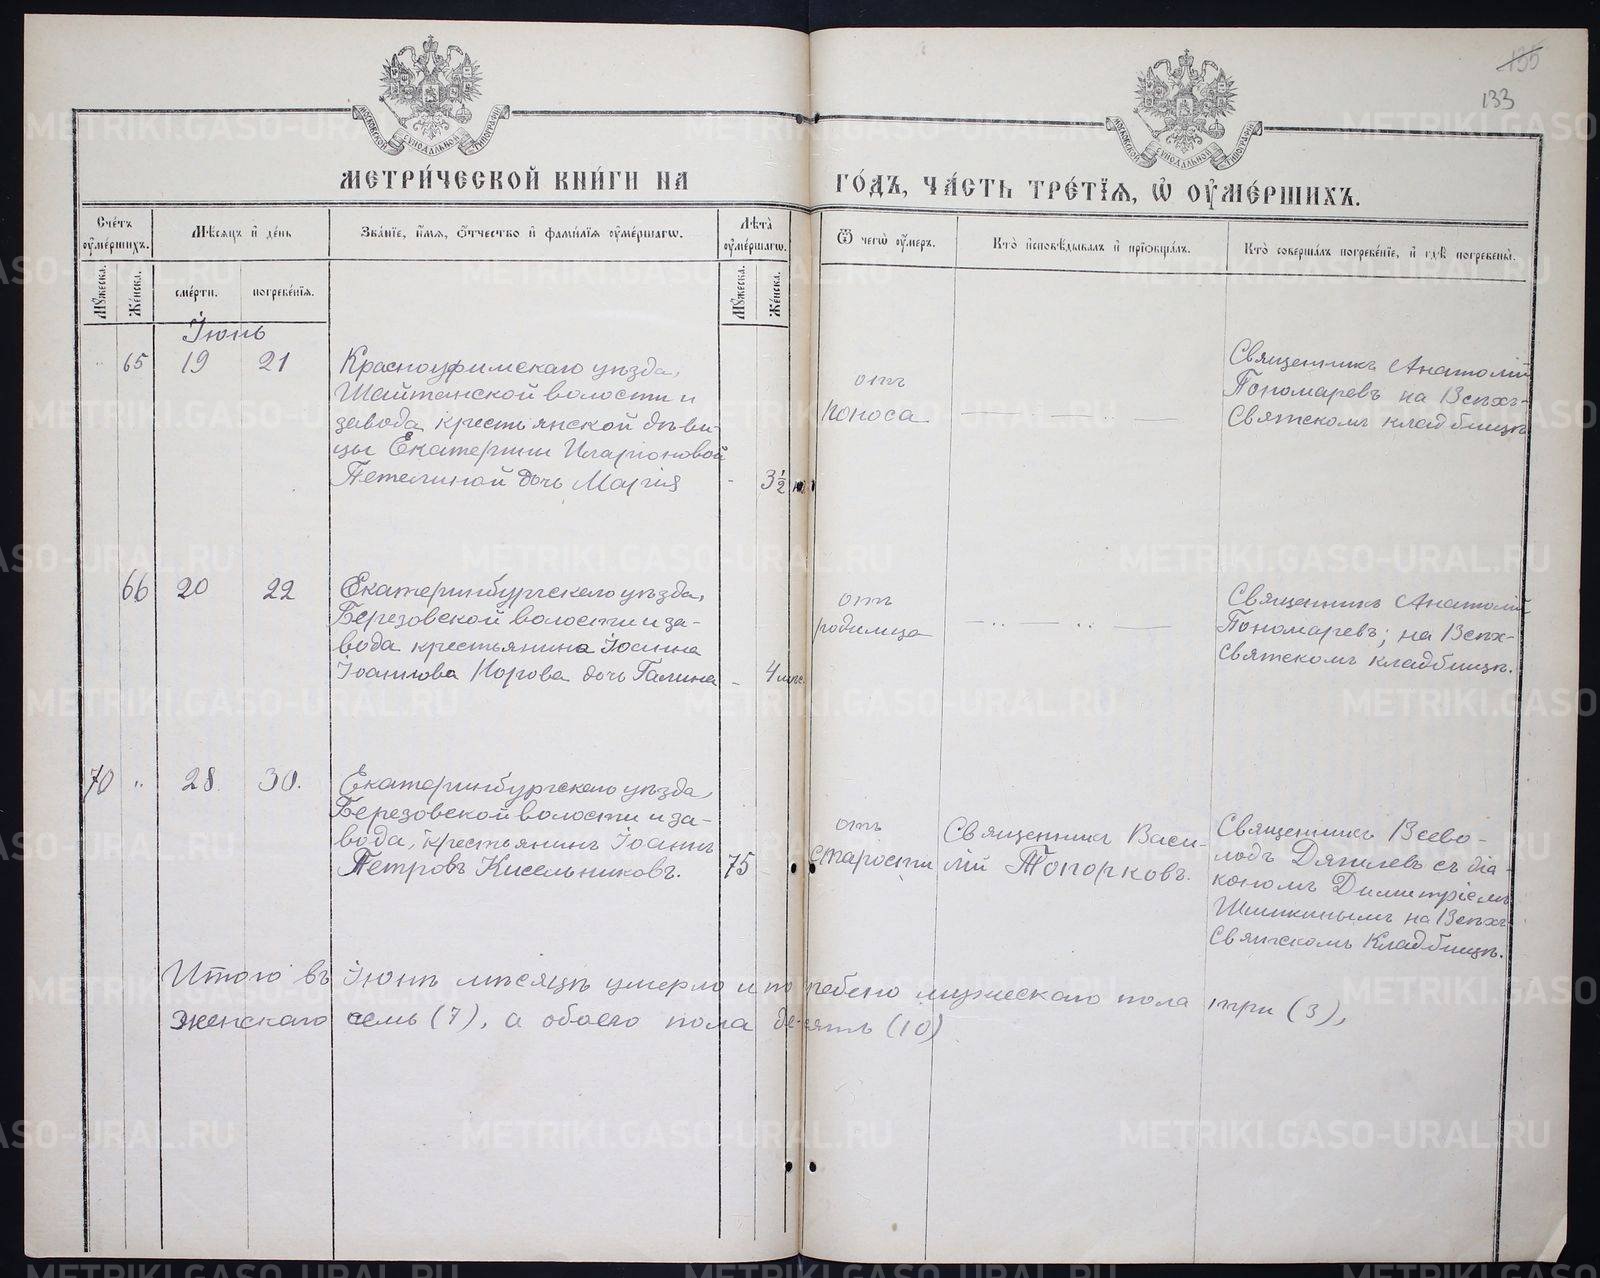 135
133
МОСКОВСКОЙ СѴНОДАЛЬНОЙ ТИПОГРАФІИ
МОСКОВСКОЙ СѴНОДАЛЬНОЙ ТИПОГРАФІИ
МЕТРИ́ЧЕСКОЙ КНИ́ГИ НА ГО́ДЪ, ЧА́СТЬ ТРЕ́ТІѦ, Ѡ ОУ҆МЕ́РШИХЪ.
Сче́тъ оу҆ме́ршихъ.
Мꙋжеска.
Же́нска.
Мѣ́сяцъ и҆ де́нь
сме́рти.
погребе́нїя.
Зва́нїе, и҆́мя, ѻ҆́тчество и҆ фами́лїя оу҆ме́ршагѡ.
Лѣ́та оу҆ме́ршагѡ.
Мꙋжеска.
Же́нска.
Ѿ чегѡ̀ оу҆́меръ.
Кто̀ и҆сповѣ́дывалъ и҆ прїѻбща́лъ.
Кто̀ соверша́лъ погребе́нїе, и҆ гдѣ̀ погребены̀.
Іюнь
65 19 21
Красноуфимскаго уѣзда,
Шайтанской волости и
завода крестьянской дѣви-
цы Екатерины Иларіоновой
Петелиной дочь Марія - 3½
отъ
поноса
Священникъ Анатолій
Пономаревъ на Всѣхъ-
Святскомъ кладбищѣ
66 20 22
Екатеринбургскаго уѣзда,
Березовской волости и за-
вода крестьянина Іоанна
Іоаннова дочь Галина - 4 мѣс.
отъ
родимца
Священникъ Анатолій
Пономаревъ; на Всѣх-
святскомъ кладбищѣ.
70 " 28 30.
Екатеринбургскаго уѣзда,
Березовской волости и за-
вода, крестьянинъ Іоаннъ
Петровъ Кисельниковъ. 75
отъ
старости
Священникъ Васи-
лій Топорковъ.
Священникъ Всево-
лодъ съ діа-
кономъ Димитріемъ
Шишкинымъ на Всѣхъ-
святскомъ Кладбищѣ.
Итого въ Іюнѣ мѣсяцѣ умерло и погребено мужескаго пола три (3),
женскаго семь (7), а обоего пола десять (10)
METRIKI.GASO-URAL.RU